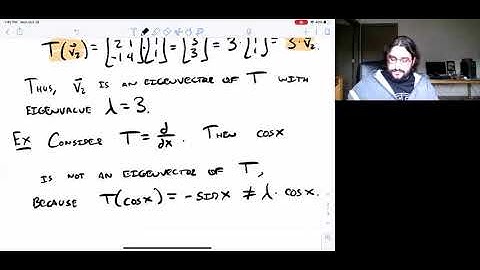 T(v⃗₂) = [2 1; -1 4][1; 1] = [3; 3] = 3·[1; 1] = 3·v⃗₂.
THUS, v⃗₂ IS AN EIGENVECTOR OF T WITH
EIGENVALUE λ=3.
EX CONSIDER T = d/dx. THEN COSX
IS NOT AN EIGENVECTOR OF T,
BECAUSE T(COSX) = -SINX ≠ λ·COSX.